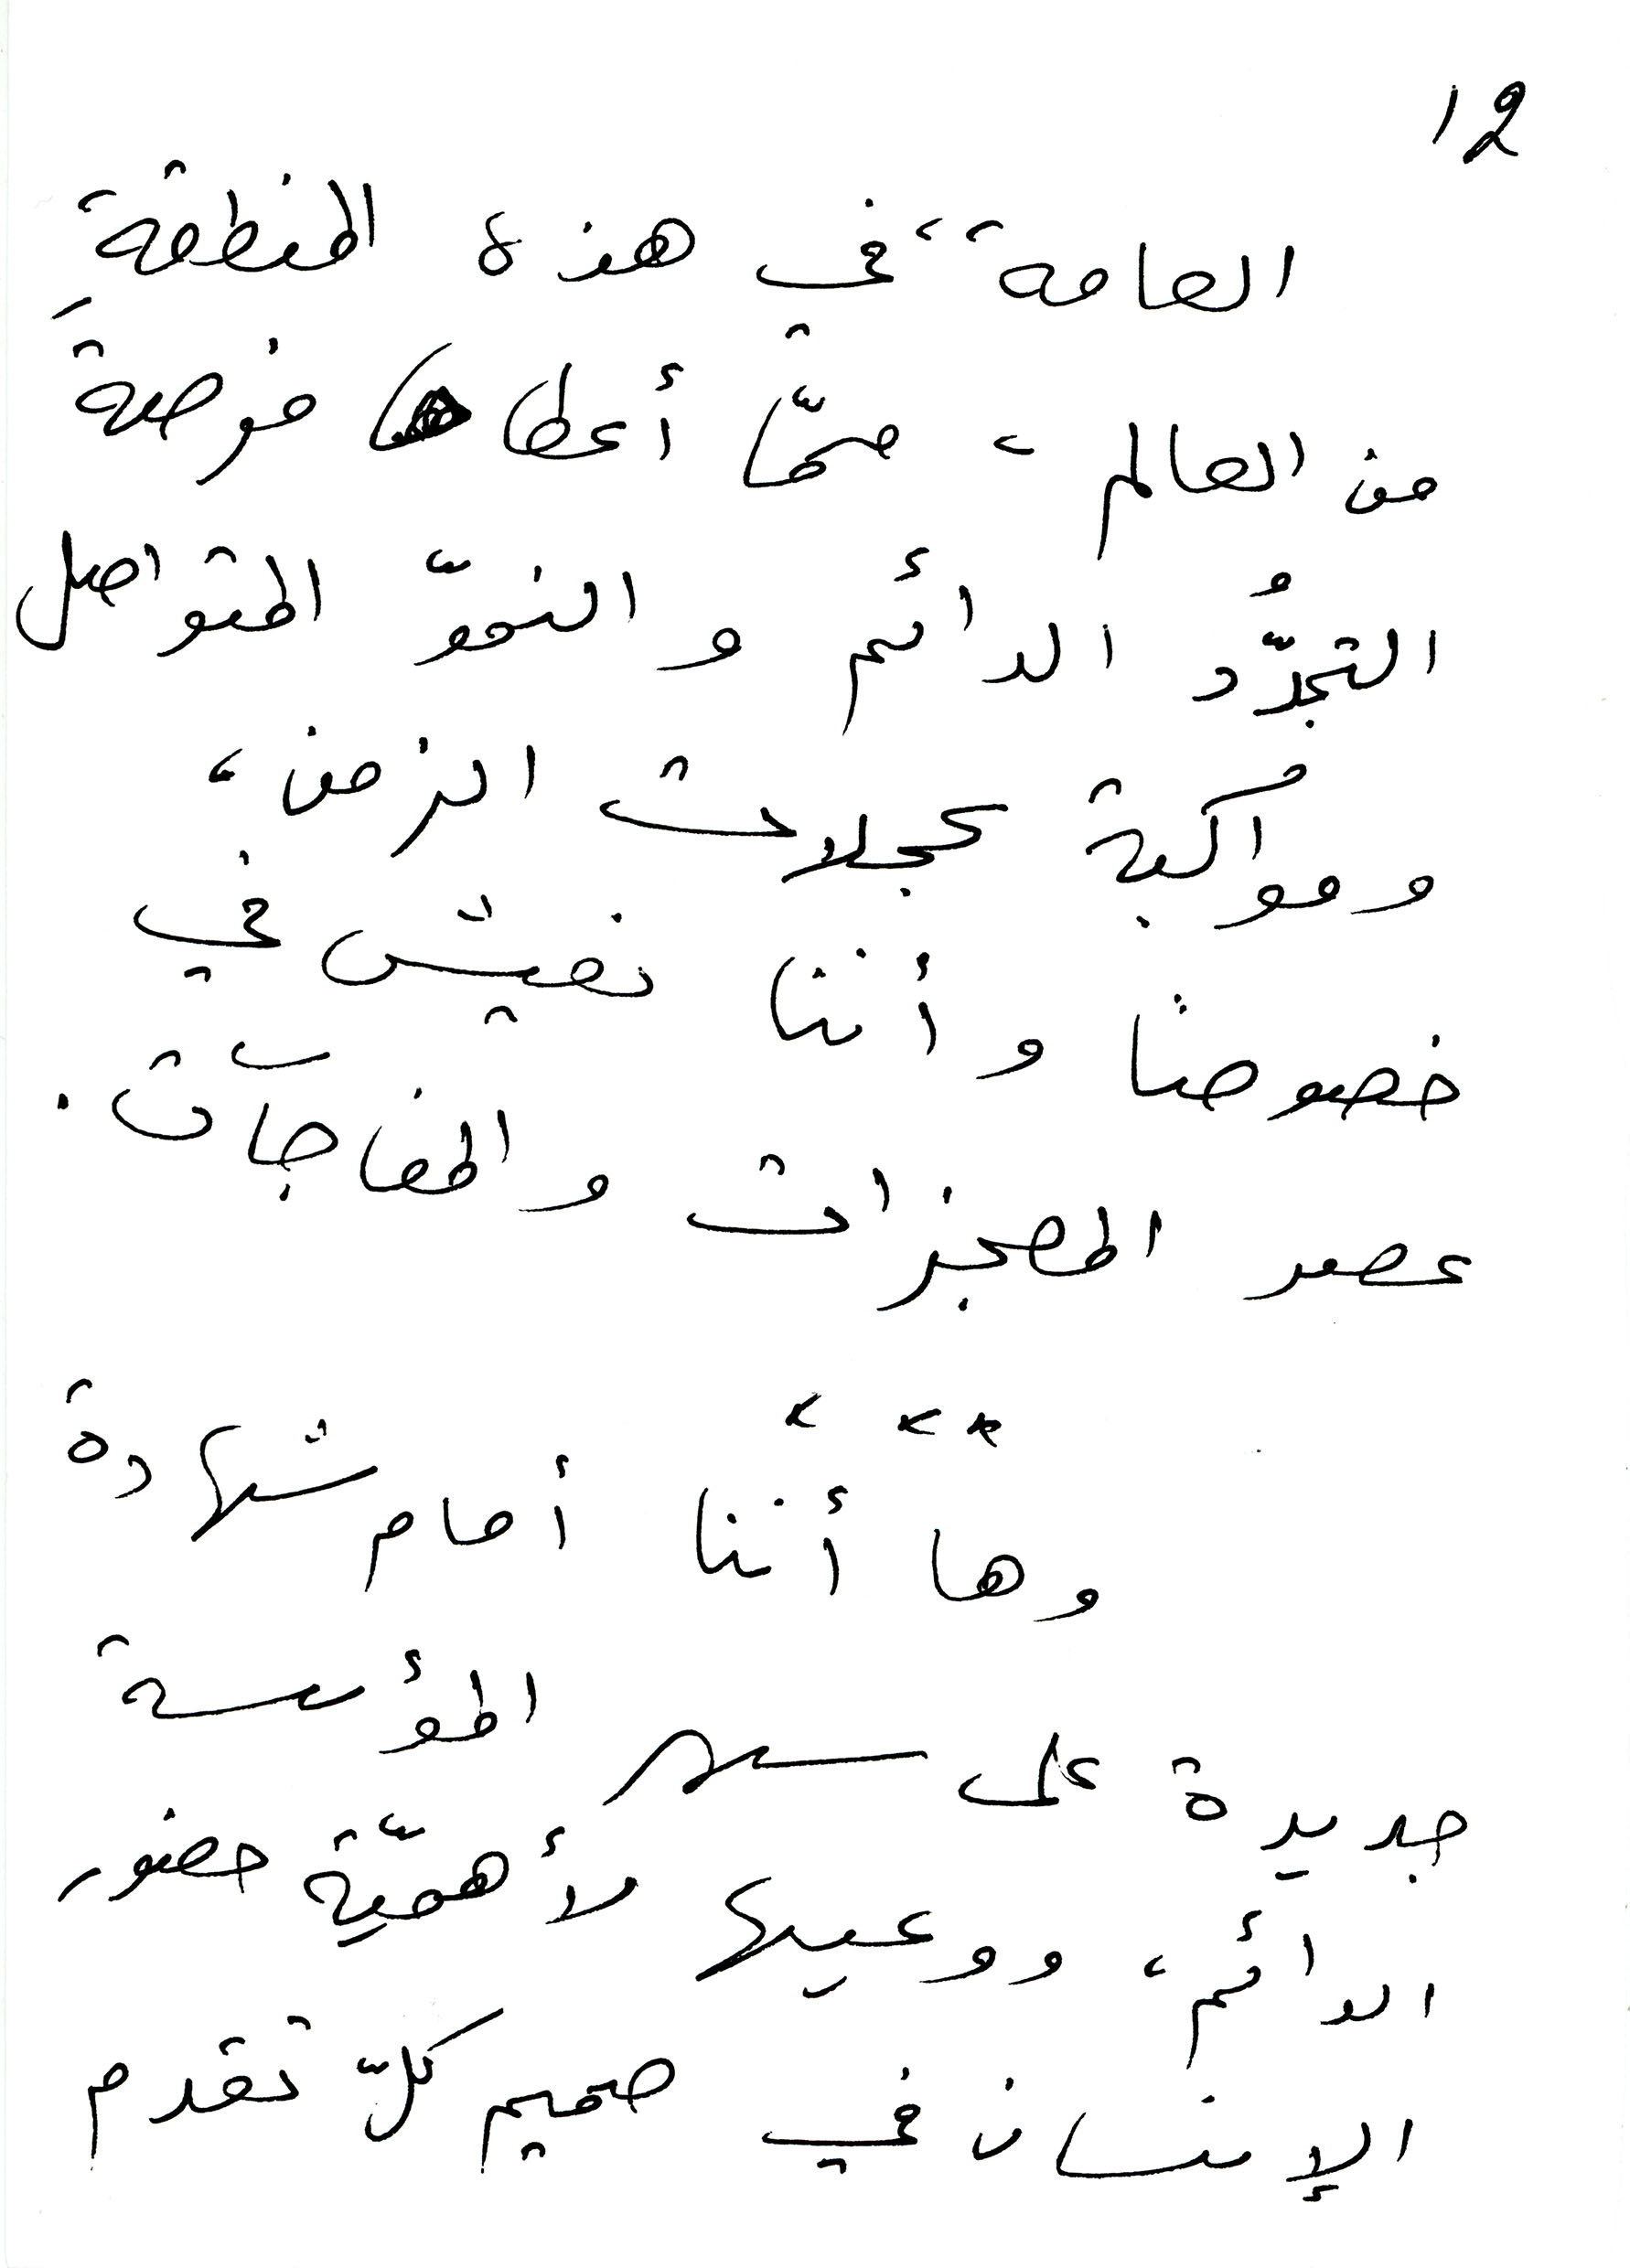 12
العامة، في هذه المنطقةِ
من العالم، ممّا أعطاها فرصةَ
التجدُّد الدائم والنموّ المتواصل
ومواكبة عجلات الزمن،
خصوصًا وأننا نعيش في
عصر المعجزات والمفاجآت.
***
وها أننا أمام شهادة
جديدة على سهر المؤسسة
الدائم، ووعيها لأهميّة حضور
الإنسان في صميم كلّ تقدم